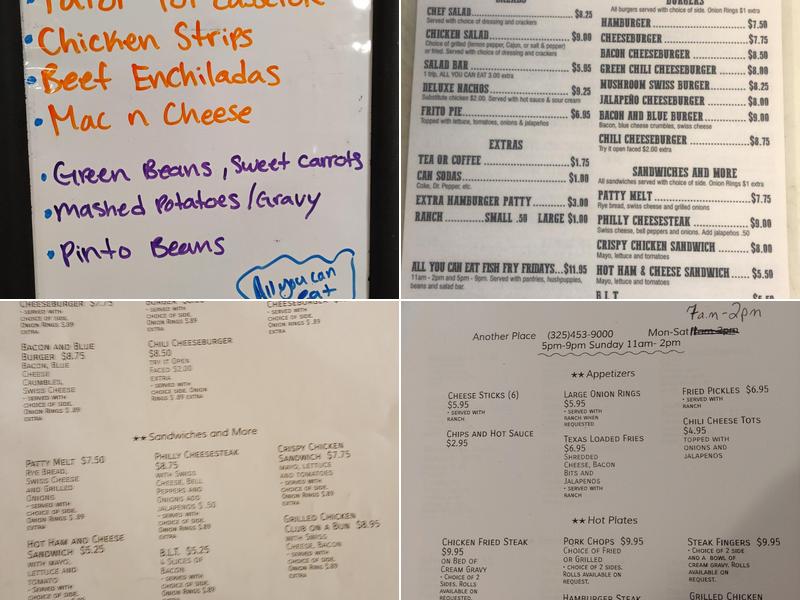 • Chicken Strips
• Beef Enchiladas
• Mac n Cheese
• Green Beans, Sweet Carrots
• Mashed Potatoes/Gravy
• Pinto Beans
All you can
eat
CHEF SALAD $8.25
Served with choice of dressing and crackers
CHICKEN SALAD $9.00
Choice of grilled (lemon pepper, Cajun, or salt & pepper)
or fried. Served with choice of dressing and crackers
SALAD BAR $5.95
1 trip, ALL YOU CAN EAT 3.00 extra
DELUXE NACHOS $9.25
Substitute chicken $2.00. Served with hot sauce & sour cream
FRITO PIE $6.95
Topped with lettuce, tomatoes, onions & jalapeños
EXTRAS
TEA OR COFFEE $1.75
CAN SODAS $1.00
Coke, Dr. Pepper, etc.
EXTRA HAMBURGER PATTY $3.00
RANCH SMALL .50 LARGE $1.00
ALL YOU CAN EAT FISH FRY FRIDAYS...$11.95
11am - 2pm and 5pm - 9pm. Served with panfries, hushpuppies,
beans and salad bar.
BURGERS
All burgers served with choice of side. Onion Rings $1 extra
HAMBURGER $7.50
CHEESEBURGER $7.75
BACON CHEESEBURGER $8.50
GREEN CHILI CHEESEBURGER $8.00
MUSHROOM SWISS BURGER $8.25
JALAPEÑO CHEESEBURGER $8.00
BACON AND BLUE BURGER $9.00
Bacon, blue cheese crumbles, swiss cheese
CHILI CHEESEBURGER $8.75
Try it open faced $2.00 extra
SANDWICHES AND MORE
All sandwiches served with choice of side. Onion Rings $1 extra
PATTY MELT $7.75
Rye bread, swiss cheese and grilled onions
PHILLY CHEESESTEAK $9.00
Swiss cheese, bell peppers and onions. Add jalapeños .50
CRISPY CHICKEN SANDWICH $8.00
Mayo, lettuce and tomatoes
HOT HAM & CHEESE SANDWICH $5.50
Mayo, lettuce and tomatoes
B.L.T.
CHEESEBURGER $7.75
- SERVED WITH
CHOICE OF SIDE.
ONION RINGS $.89
EXTRA
- SERVED WITH
CHOICE OF SIDE.
ONION RINGS $ .89
EXTRA
CHEESEBURGER
- SERVED WITH
CHOICE OF SIDE.
ONION RINGS $ .89
EXTRA
BACON AND BLUE
BURGER $8.75
BACON, BLUE
CHEESE
CRUMBLES,
SWISS CHEESE
- SERVED WITH
CHOICE OF SIDE.
ONION RINGS $ .89
EXTRA
CHILI CHEESEBURGER
$8.50
TRY IT OPEN
FACED $2.00
EXTRA
- SERVED WITH
CHOICE OF SIDE. ONION
RINGS $ .89 EXTRA
★★ Sandwiches and More
PATTY MELT $7.50
RYE BREAD,
SWISS CHEESE
AND GRILLED
ONIONS
- SERVED WITH
CHOICE OF SIDE.
ONION RINGS $.89
EXTRA
PHILLY CHEESESTEAK
$8.75
WITH SWISS
CHEESE, BELL
PEPPERS AND
ONIONS ADD
JALAPENOS $ .50
- SERVED WITH
CHOICE OF SIDE.
ONION RINGS $.89
EXTRA
CRISPY CHICKEN
SANDWICH $7.75
MAYO, LETTUCE
AND TOMATOES
- SERVED WITH
CHOICE OF SIDE.
ONION RINGS $.89
EXTRA
HOT HAM AND CHEESE
SANDWICH $5.25
WITH MAYO,
LETTUCE AND
TOMATO
- SERVED WITH
CHOICE OF SIDE.
B.L.T. $5.25
4 SLICES OF
BACON
- SERVED WITH
CHOICE OF SIDE.
ONION RINGS $.89
GRILLED CHICKEN
CLUB ON A BUN $8.95
WITH SWISS
CHEESE, BACON
- SERVED WITH
CHOICE OF SIDE.
ONION RING $.89
EXTRA
7a.m-2pm
Another Place (325)453-9000 Mon-Sat 11am-2pm
5pm-9pm Sunday 11am- 2pm
★★ Appetizers
CHEESE STICKS (6)
$5.95
• SERVED WITH
RANCH
CHIPS AND HOT SAUCE
$2.95
LARGE ONION RINGS
$5.95
• SERVED WITH
RANCH WHEN
REQUESTED
TEXAS LOADED FRIES
$6.95
SHREDDED
CHEESE, BACON
BITS AND
JALAPENOS
• SERVED WITH
RANCH
FRIED PICKLES $6.95
• SERVED WITH
RANCH
CHILI CHEESE TOTS
$4.95
TOPPED WITH
ONIONS AND
JALAPENOS
★★ Hot Plates
CHICKEN FRIED STEAK
$9.95
ON BED OF
CREAM GRAVY
• CHOICE OF 2
SIDES. ROLLS
AVAILABLE ON
REQUEST.
PORK CHOPS $9.95
CHOICE OF FRIED
OR GRILLED
• CHOICE OF 2 SIDES.
ROLLS AVAILABLE ON
REQUEST.
HAMBURGER STEAK
STEAK FINGERS $9.95
• CHOICE OF 2 SIDE
AND A BOWL OF
CREAM GRAVY. ROLLS
AVAILABLE ON
REQUEST.
GRILLED CHICKEN